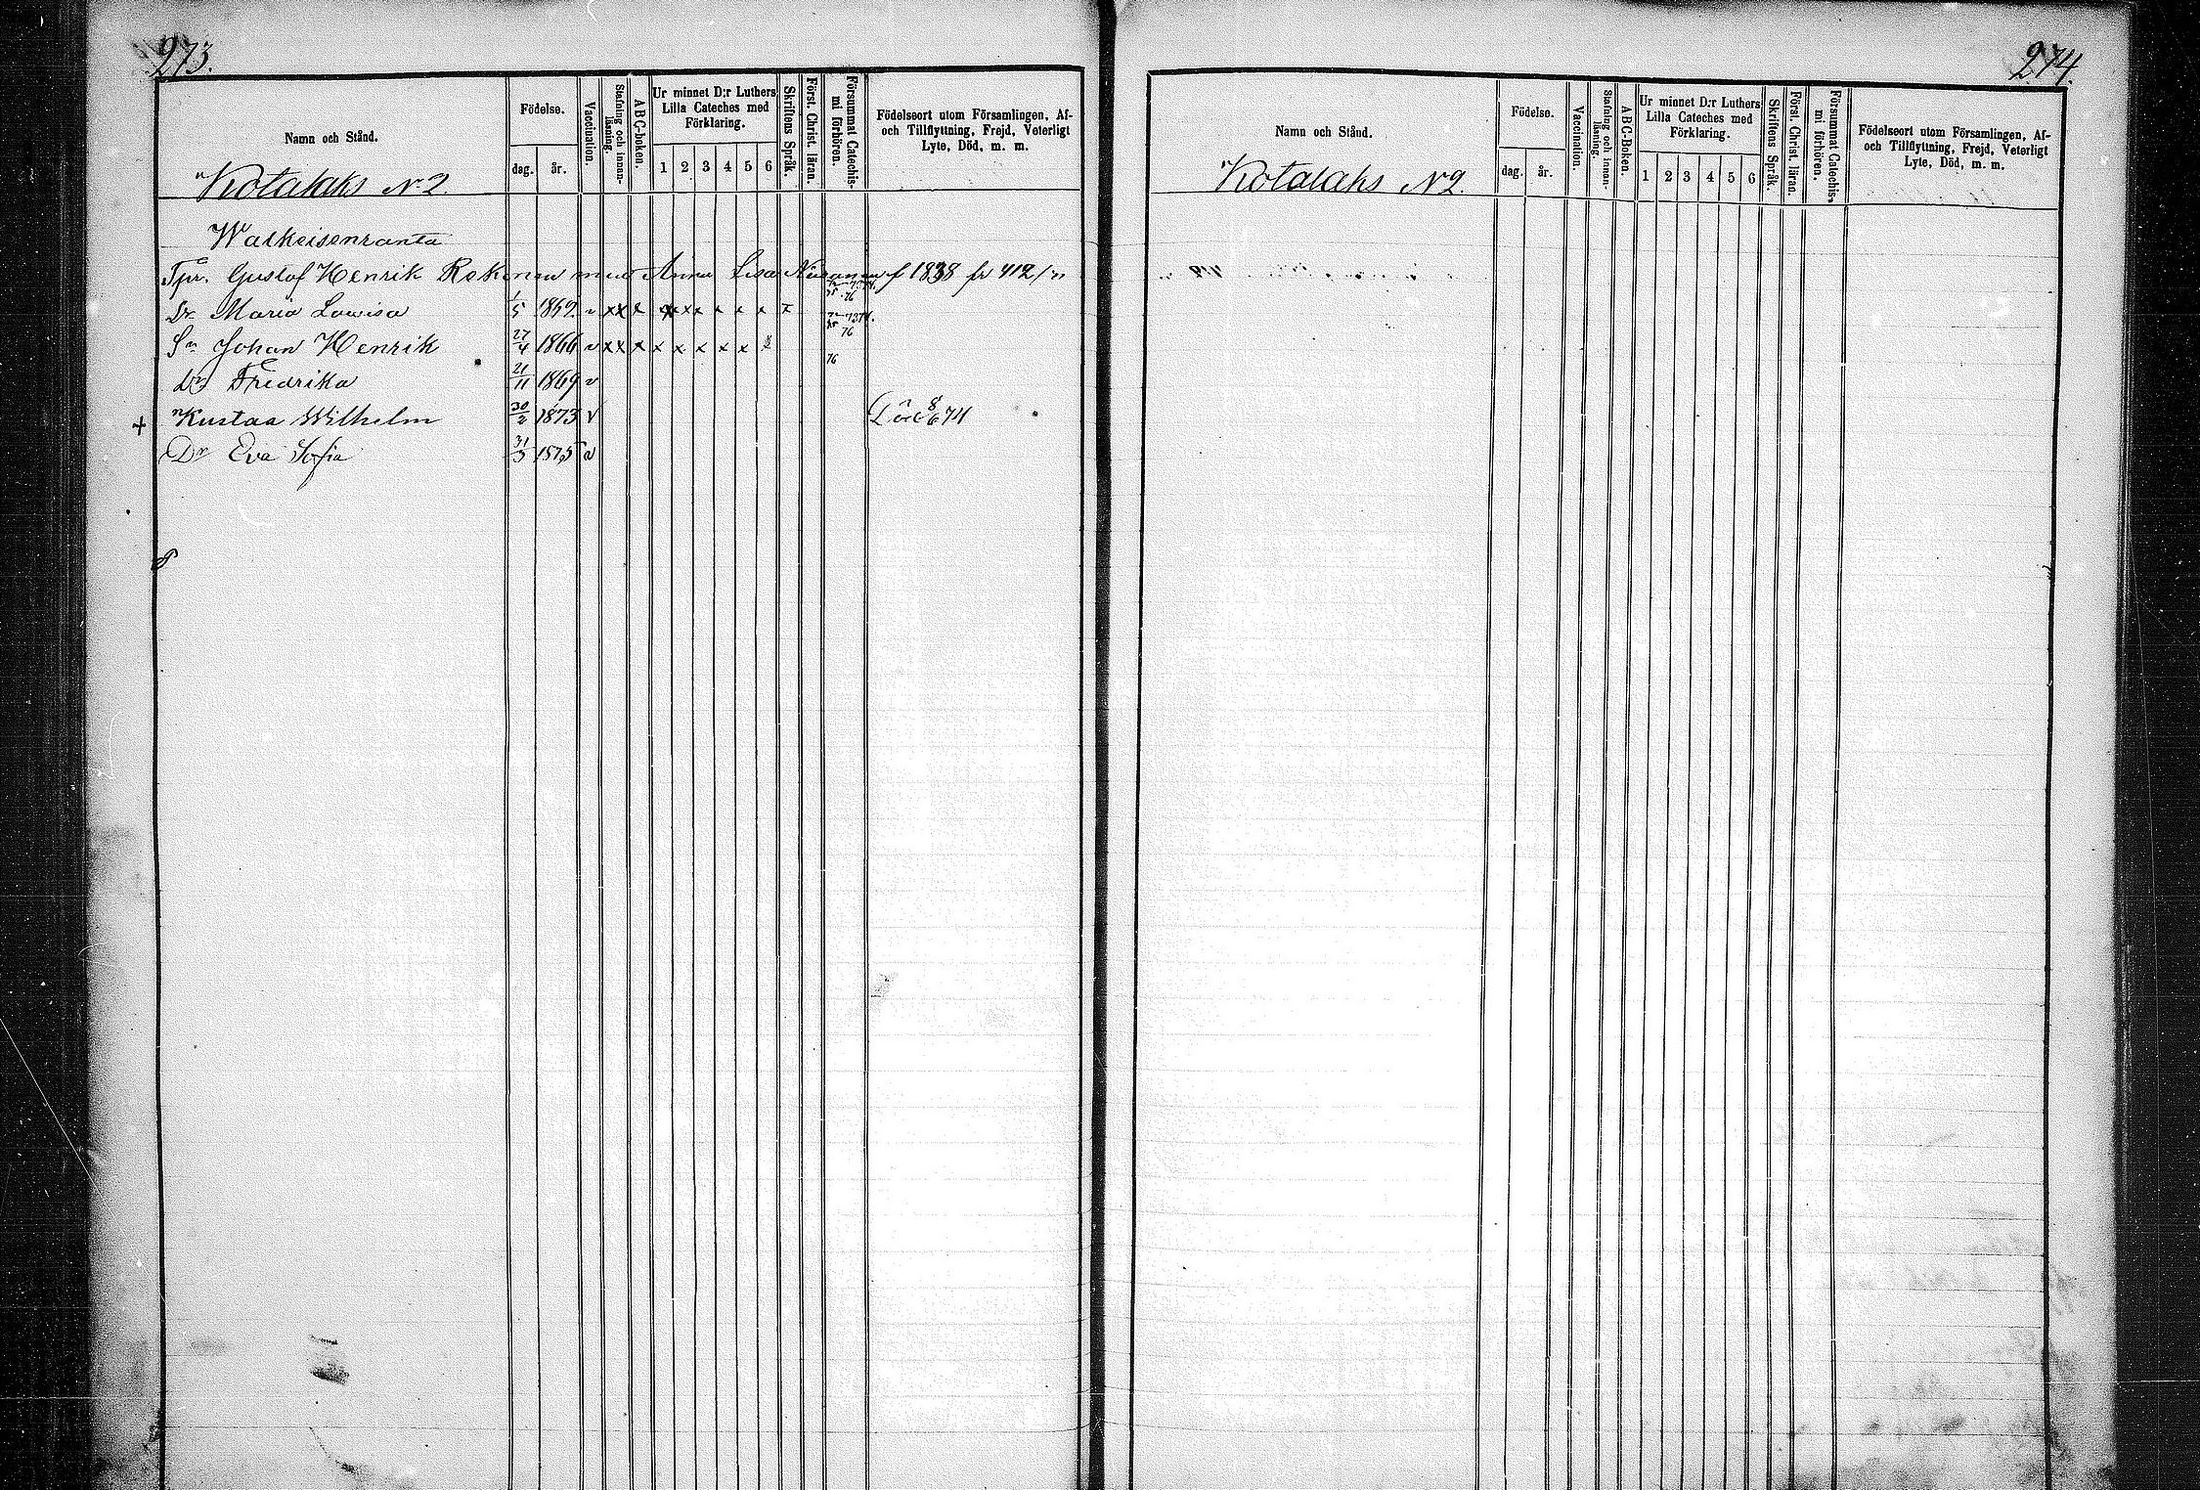 273.
Namn och Stånd.
Födelse.
dag. år.
Vaccination.
Stafning och innanläsning.
ABC-boken.
Ur minnet D:r Luthers
Lilla Cateches med
Förklaring.
1 2 3 4 5 6
Skriftens Språk.
Först. Christ. läran.
Försummat Catechismi förhören.
Födelseort utom Församlingen, Af-
och Tillflyttning, Frejd, Veterligt
Lyte, Död, m. m.
Kotalaks N 2.
Walkeisenranta
Tpr. Gustaf Henrik med Anna Lisa f 1838 fr 412/
Dr Maria Lowisa 1/5 v x x x x x x x x x x
Sn Johan Henrik 27/4 1866 v x x x x x x x x 76
dr Fredrika 21/11 1869 v
+ Kustaa Wilhelm 30/2 1873 v Död 8/6 74
Dr Eva Sofia 31/3 1875 v
274.
Namn och Stånd.
Födelse.
dag. år.
Vaccination.
Stafning och innanläsning.
ABC-Boken.
Ur minnet D:r Luthers
Lilla Cateches med
Förklaring.
1 2 3 4 5 6
Skriftens Språk.
Först. Christ. läran.
Försummat Catechismi förhören.
Födelseort utom Församlingen, Af-
och Tillflyttning, Frejd, Veterligt
Lyte, Död, m. m.
Kotalaks N 2.